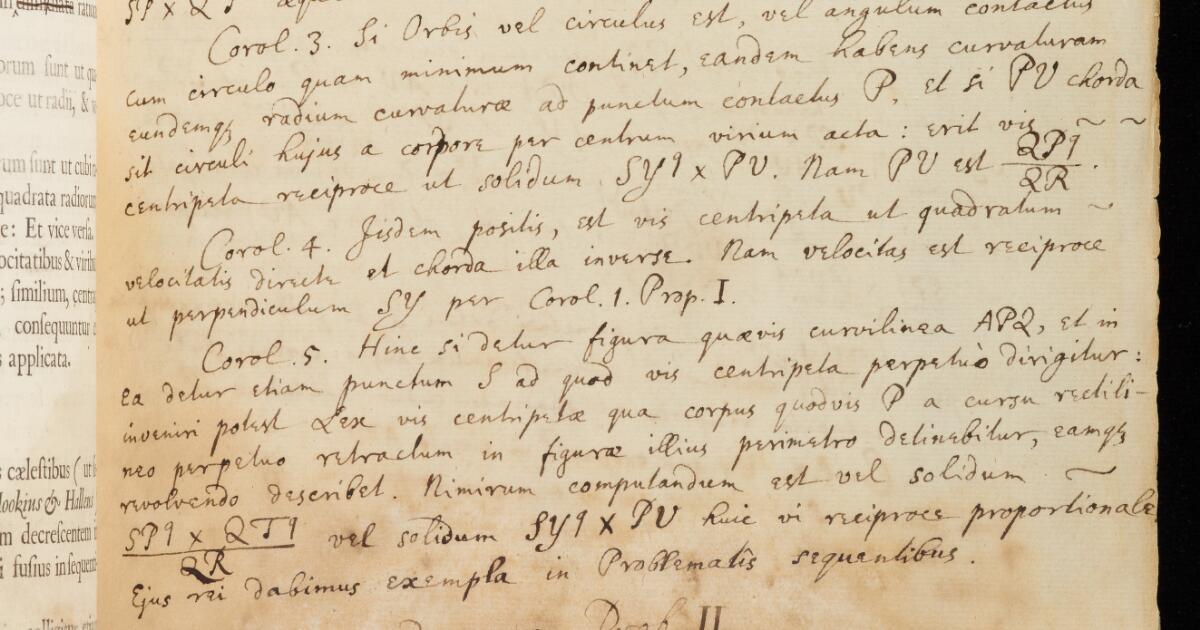 orum sunt ut
oce ut radii, &
rum sunt ut
quadrata radiorum
e: Et vice versa.
ocitatibus & viribus
; similium, centra
consequuntur
s applicata.
s cælestibus ( ut
Hookius & Hallens
m decrescentem
i fusius in sequent
SP q × QT
Corol. 3. Si Orbis vel circulus est, vel angulum contactus
cum circulo quam minimum continet, eandem habens curvaturam
eundemqꝫ radium curvaturæ ad punctum contactus P, et si PV chorda
sit circuli hujus a corpore per centrum virium acta: erit vis ~ ~
centripeta reciproce ut solidum SYq × PV. Nam PV est QPq/QR.
Corol. 4. Iisdem positis, est vis centripeta ut quadratum ~
velocitatis directe et chorda illa inverse. Nam velocitas est reciproce
ut perpendiculum SY per Corol. 1. Prop. I.
Corol. 5. Hinc si detur figura quævis curvilinea APQ, et in
ea detur etiam punctum S ad quod vis centripeta perpetuò dirigitur:
inveniri potest Lex vis centripetæ qua corpus quodvis P a cursu rectili-
neo perpetuo retractum in figuræ illius perimetro detinebitur, eamqꝫ
revolvendo describet. Nimirum computandum est vel solidum ~
SPq × QTq/QR vel solidum SYq × PV huic vi reciproce proportionale
Ejus rei dabimus exempla in Problematis sequentibus.
Prob. II